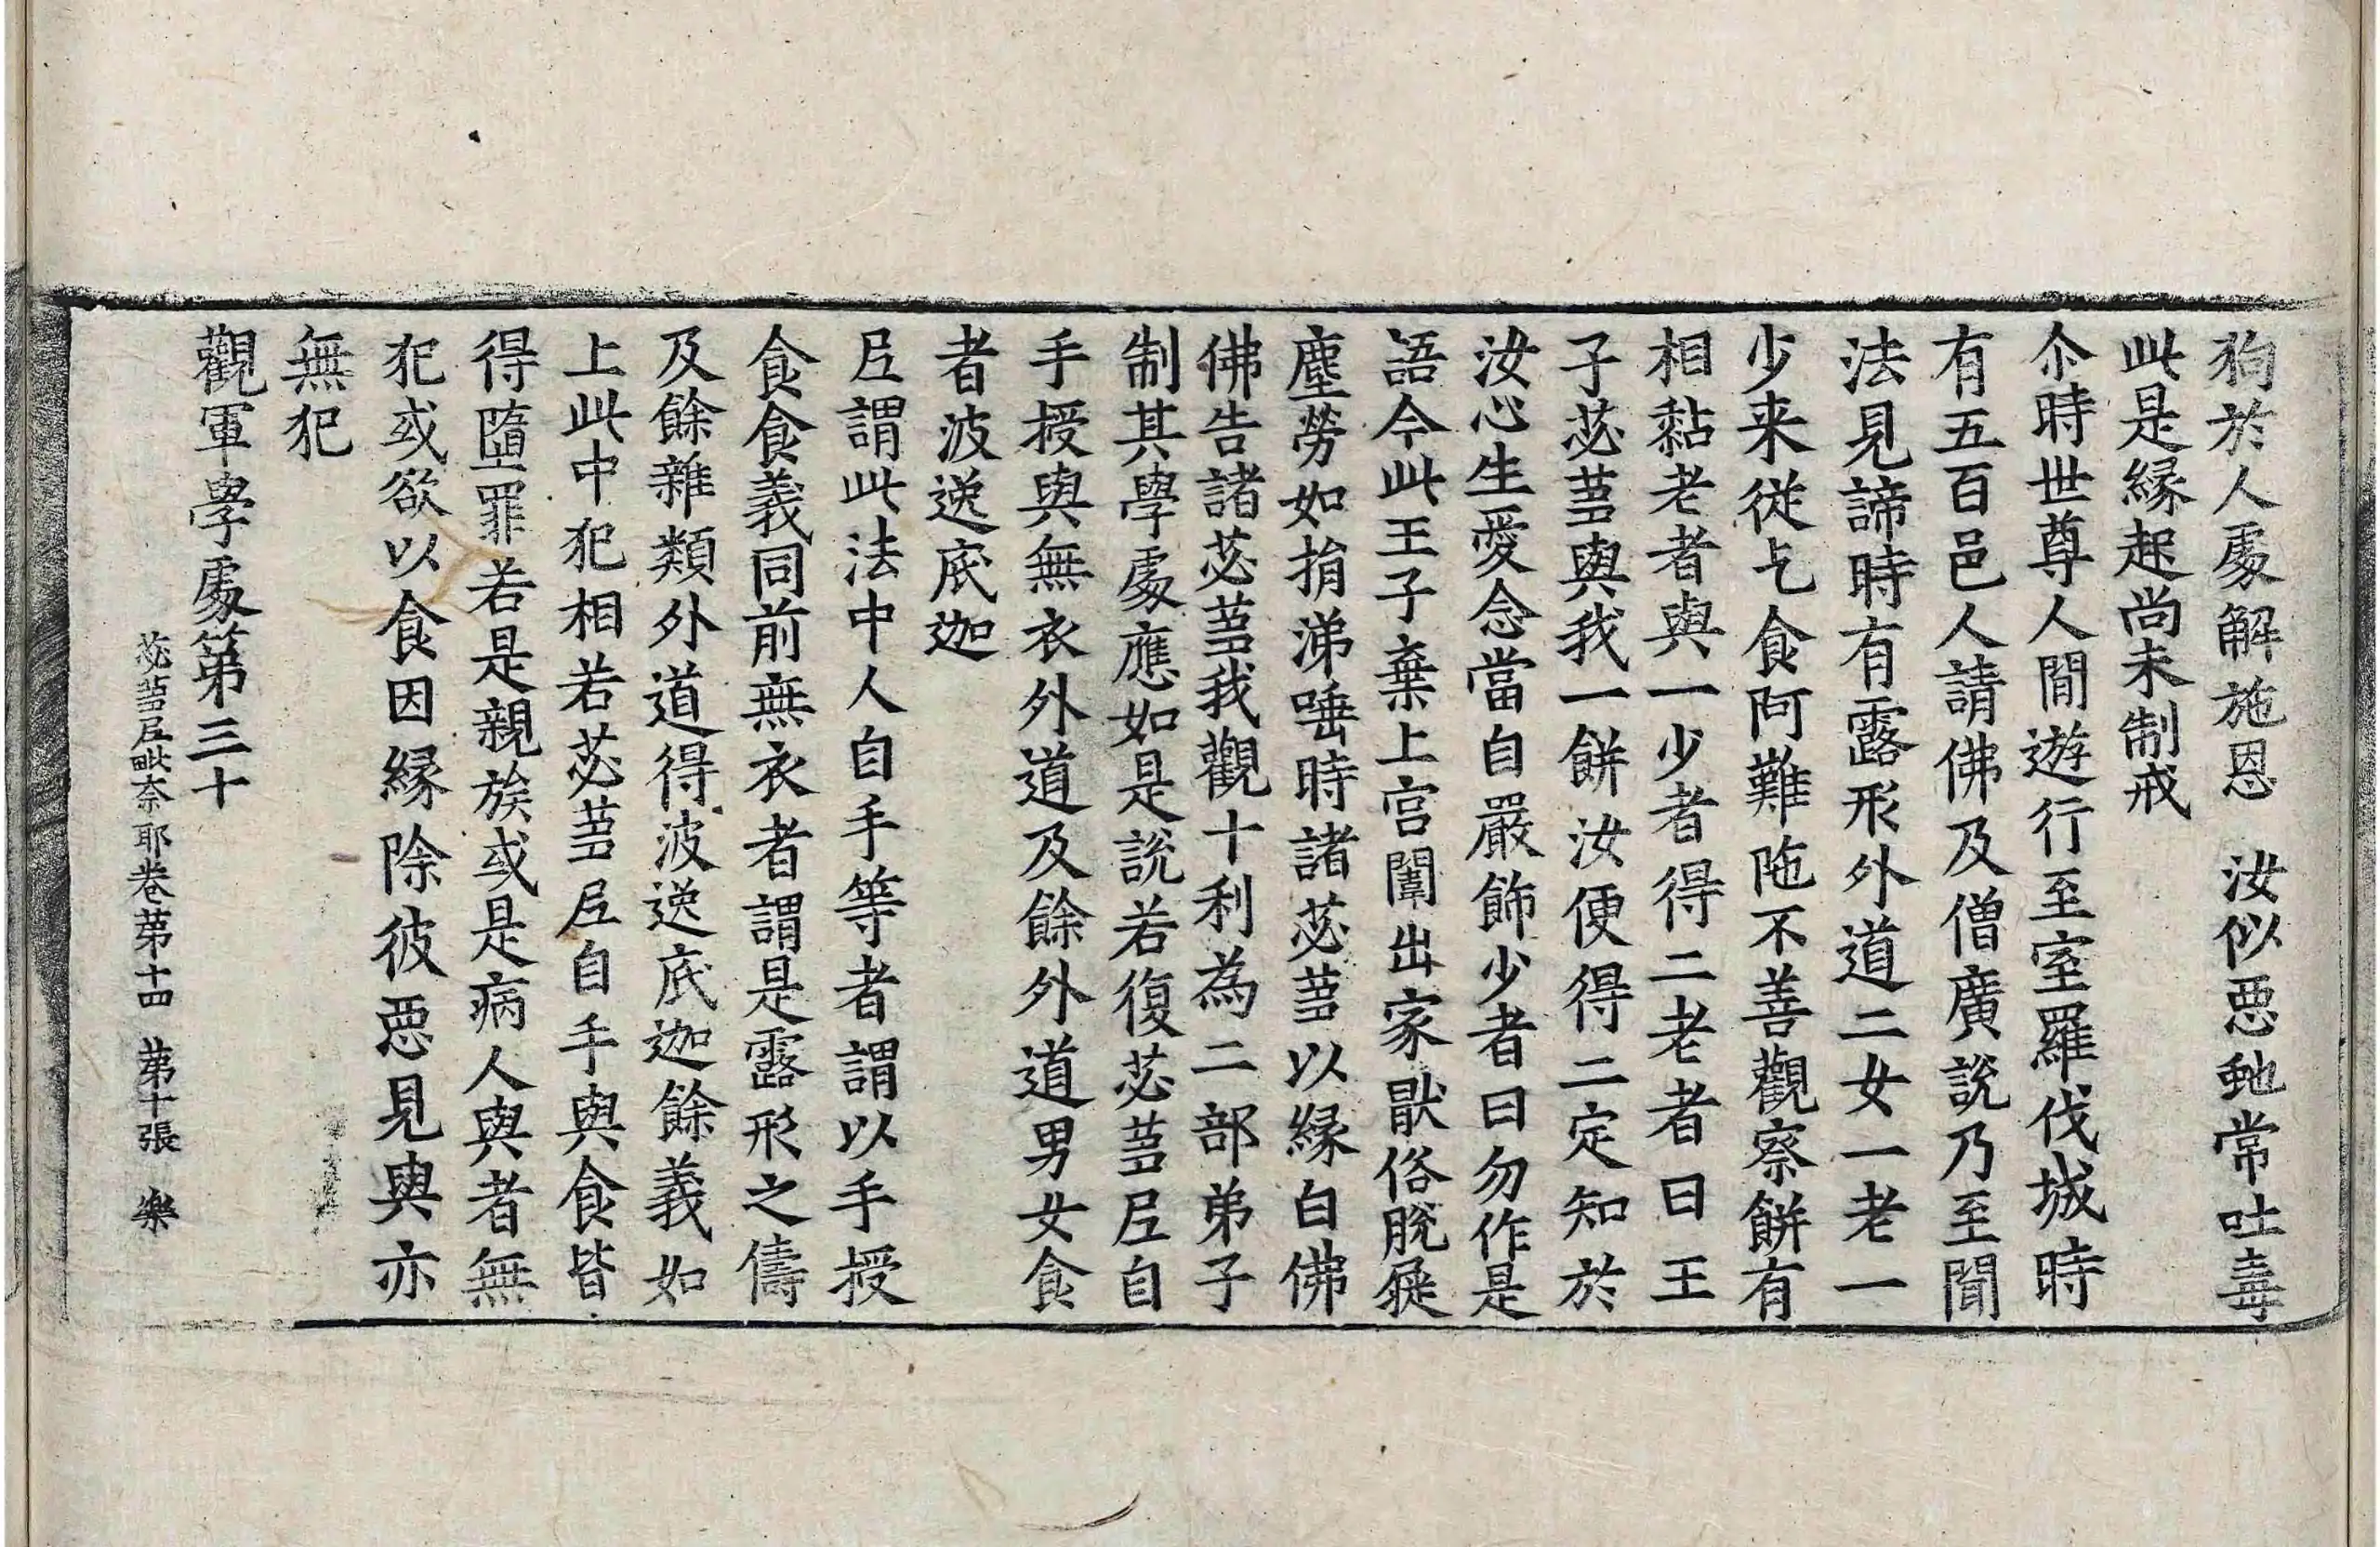 狗於人處解施恩　汝似惡虵常吐毒
此是縁起尚未制戒
尒時世尊人閒遊行至室羅伐城時
有五百邑人請佛及僧廣說乃至聞
法見諦時有露形外道二女一老一
少来從乞食阿難陁不善觀察餅有
相黏老者與一少者得二老者曰王
子苾蒭與我一餅汝便得二定知於
汝心生愛念當自嚴飾少者曰勿作是
語今此王子棄上宮闈出家猒俗脫屣
塵勞如捐涕唾時諸苾蒭以縁白佛
佛告諸苾蒭我觀十利為二部弟子
制其學處應如是說若復苾蒭尼自
手授與無衣外道及餘外道男女食
者波逸底迦
尼謂此法中人自手等者謂以手授
食食義同前無衣者謂是露形之儔
及餘雜類外道得波逸底迦餘義如
上此中犯相若苾蒭尼自手與食皆
得墮罪若是親族或是病人與者無
犯或欲以食因縁除彼惡見與亦
無犯
觀軍學處第三十
苾蒭尼毗奈耶卷第十四　第十張　樂